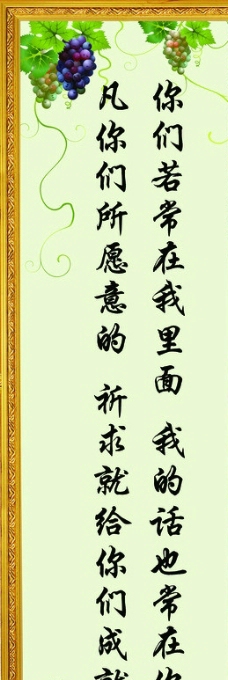 你们若常在我里面 我的话也常在你
凡你们所愿意的 祈求就给你们成就